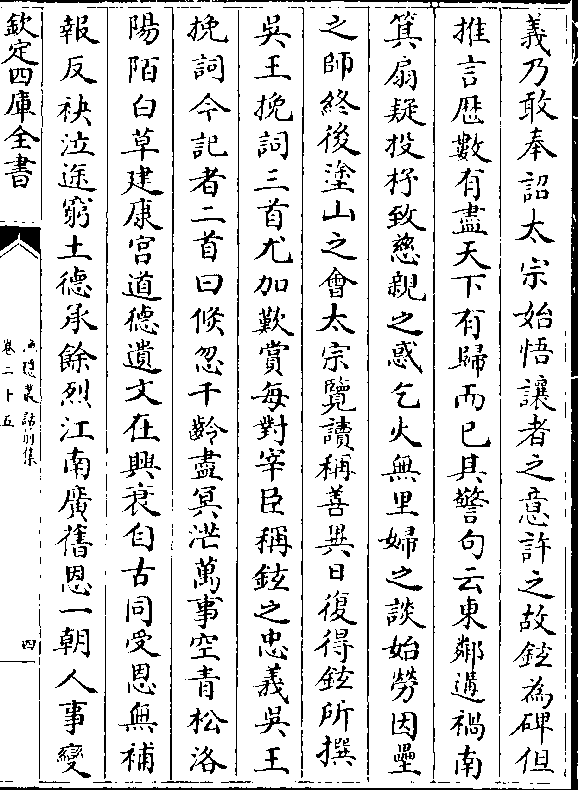 義乃敢奉詔太宗始悟讓者之意許之故鉉為碑但
推言歴數有盡天下有歸而已其警句云東鄰遘禍南
箕扇疑投杼致慈親之惑乞火無里婦之談始勞因壘
之師終後塗山之會太宗覽讀稱善異日復得鉉所撰
吳王挽詞三首尤加歎賞每對宰臣稱鉉之忠義吳王
挽詞今記者二首曰倐忽千齡盡冥茫萬事空青松洛
陽陌白草建康宮道德遺文在興衰自古同受恩無補
報反袂泣途窮土德承餘烈江南廣舊恩一朝人事變
欽定四庫全書
漁隱叢話前集
卷二十五
四